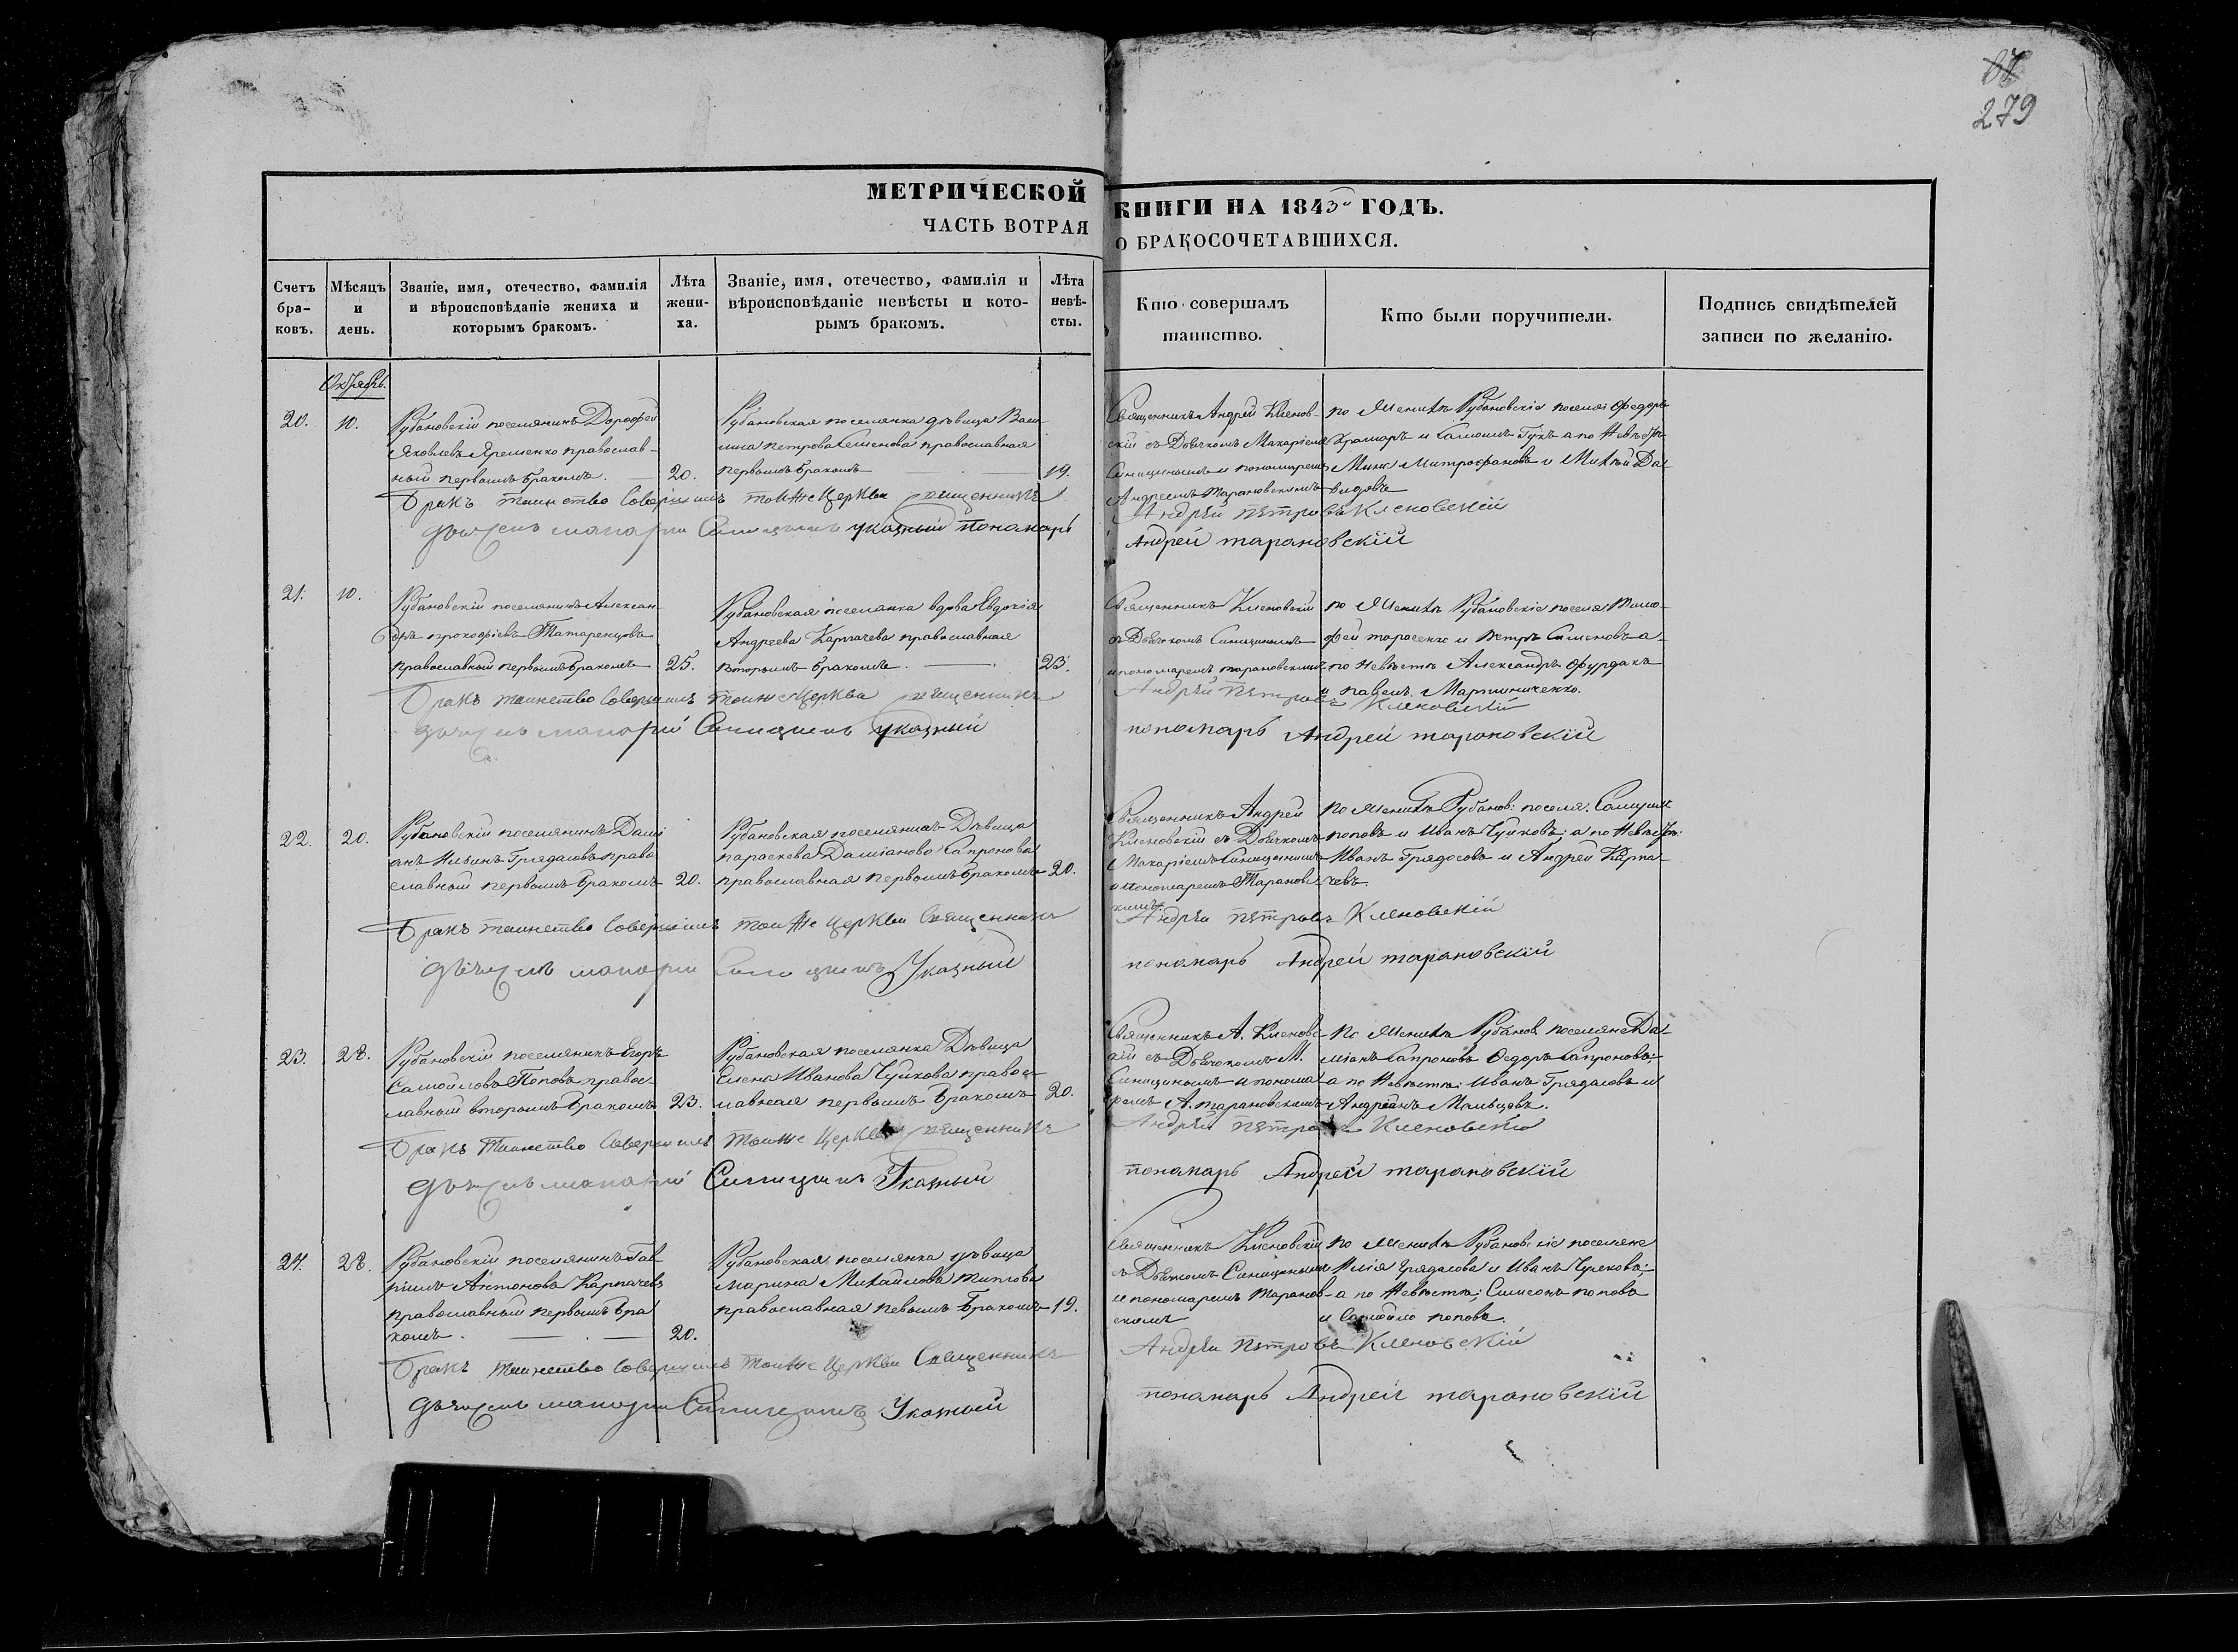 279
МЕТРИЧЕСКОЙ КНИГИ НА 1843й ГОДЪ.
ЧАСТЬ ВОТРАЯ О БРАКОСОЧЕТАВШИХСЯ.
Счетъ бра-ковъ.
Мѣсяцъ и день.
Званіе, имя, отечество, фамилія и вѣроисповѣданіе жениха и которымъ бракомъ.
Лѣта жени-ха.
Званіе, имя, отечество, фамилія и вѣроисповѣданіе невѣсты и кото-рымъ бракомъ.
Лѣта невѣ-сты.
Кто совершалъ таинство.
Кто были поручители.
Подпись свидѣтелей записи по желанію.
Октябрь.
20.
10.
Рубановскій поселянинъ Дорофей
Яковлевъ Яременко православ-
ный первымъ бракомъ.
20.
Рубановская поселянка дѣвица Васи
лиса Петрова Семенова православная
первымъ бракомъ
19.
Священникъ Андрей Кленов-
скій съ Дьячкомъ Макаріемъ
Синицынымъ и пономаремъ
Андреемъ Тарановскимъ
по Женихѣ Рубановскіе поселя: Федоръ
Крамаръ и Самоилъ Гукъ а по Невѣстѣ:
Мина Митрофановъ и Михей Да-
видовъ
Бракъ таинство Совершилъ тойже Церкви священникъ Андрей Петровъ Кленовскій
дьячекъ макарій Синицынъ указный понамарь Андрей тарановскій
21.
10.
Рубановскій поселянинъ Алексан-
дръ прокофіевъ Татаренцовъ
православный первымъ бракомъ
25.
Рубановская поселянка вдова Евдокія
Андреева Карпачева православная
вторымъ бракомъ.
23.
Священникъ Кленовскій
съ Дьячкомъ Синицынымъ
и пономаремъ тарановскимъ
по Женихѣ Рубановскіе поселя: Тимо-
фей тарасенко и Петръ Семеновъ а
по Невѣстѣ Александръ Фурдакъ
и павелъ Мартиниченко.
Бракъ таинство Совершилъ тоиже Церкви священникъ Андрей Петровъ Кленовскій
дьячекъ макарій Синицынъ указный пономарь Андрей тарановскій
22.
20.
Рубановскій поселянинъ Дамі
анъ Ильинъ Грядасовъ право
славный первымъ бракомъ
20.
Рубановская поселянка Дѣвица
параскева Даміанова Сапронова
православная первымъ бракомъ
20.
Священникъ Андрей
Кленовскій съ Дьячкомъ
Макаріемъ Синицынымъ
и пономаремъ Тарановс
кимъ.
По Женихѣ Рубанов: поселя: Самуилъ
поповъ и Иванъ Чуйковъ; а по Невѣстѣ:
Иванъ Грядосовъ и Андрей Карпа-
чевъ.
Бракъ таинство Совершилъ тоиже Церкви Священникъ Андрей Петровъ Кленовскій
дьячекъ макарій Синицынъ Указный пономарь Андрей тарановскій
23.
28.
Рубановскій поселянинъ Егоръ
Самойловъ Поповъ правос-
лавный вторымъ бракомъ
23.
Рубановская поселянка Дѣвица
Елена Иванова Чуйкова правос-
лавная первымъ бракомъ
20.
Священникъ А. Кленовс-
кій съ Дьячкомъ М.
Синицынымъ и понома-
ремъ А. тарановскимъ
По Женихѣ Рубанов. поселяне Да-
міанъ Сапроновъ Федоръ Сапроновъ;
а по Невѣстѣ: Иванъ Грядасовъ и
Андреянъ Мальцовъ.
Бракъ Таинство Совершилъ тоиже Церкви священникъ Андрей Петровъ Кленовскій
дьячекъ макарій Синицынъ Указный понамарь Андрей тарановскій
24.
28.
Рубановскій поселянинъ Гав
ріилъ Антоновъ Карпачевъ
православный первымъ бра
комъ.
20.
Рубановская поселянка дѣвица
марина Михайлова
православная певымъ бракомъ
19.
Священникъ Кленовскій
съ Дьячкомъ Синицынымъ
и пономаремъ Таранов-
скимъ
по Женихѣ Рубановскіе поселяне
Илія Грядасовъ и Иванъ
а по Невѣстѣ; Симеонъ поповъ
и Самойло поповъ.
Бракъ таинство Совершилъ тоиже Церкви Священникъ Андрей Петровъ Кленовскій
дьячекъ макарій Синицынъ Указный понамарь Андрей тарановскій